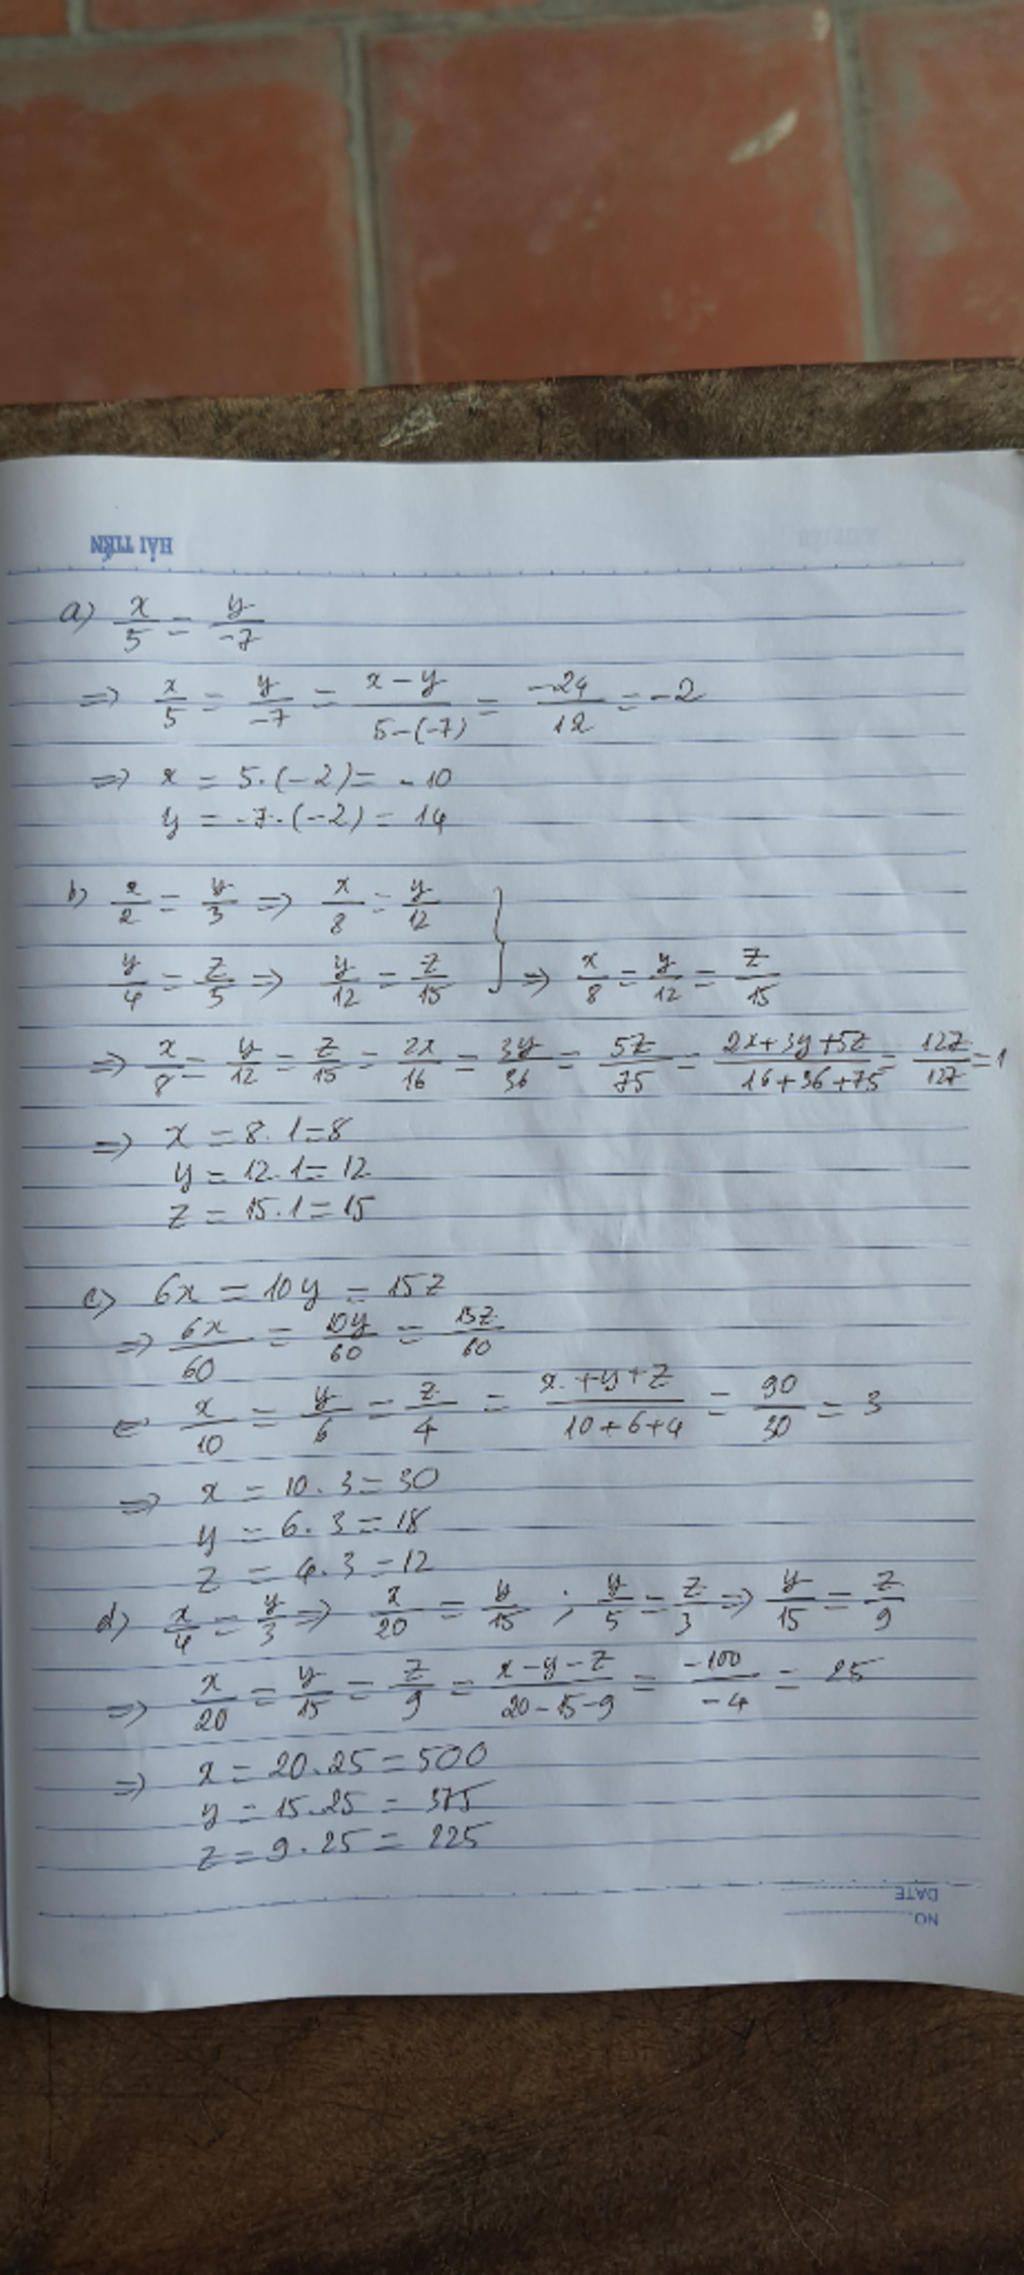 HẢI TIẾN
a) x/5 = y/-7
=> x/5 = y/-7 = x-y/5-(-7) = -24/12 = -2
=> x = 5.(-2) = -10
y = -7.(-2) = 14
b) x/2 = y/3 => x/8 = y/12
y/4 = z/5 => y/12 = z/15 } => x/8 = y/12 = z/15
=> x/8 = y/12 = z/15 = 2x/16 = 3y/36 = 5z/75 = 2x+3y+5z/16+36+75 = 127/127 = 1
=> x = 8.1 = 8
y = 12.1 = 12
z = 15.1 = 15
c) 6x = 10y = 15z
=> 6x/60 = 10y/60 = 15z/60
x/10 = y/6 = z/4 = x+y+z/10+6+4 = 90/30 = 3
=> x = 10.3 = 30
y = 6.3 = 18
z = 4.3 = 12
d) x/4 = y/3 => x/20 = y/15 ; y/5 = z/3 => y/15 = z/9
=> x/20 = y/15 = z/9 = x-y-z/20-15-9 = -100/-4 = 25
=> x = 20.25 = 500
y = 15.25 = 375
z = 9.25 = 225
DATE
NO.